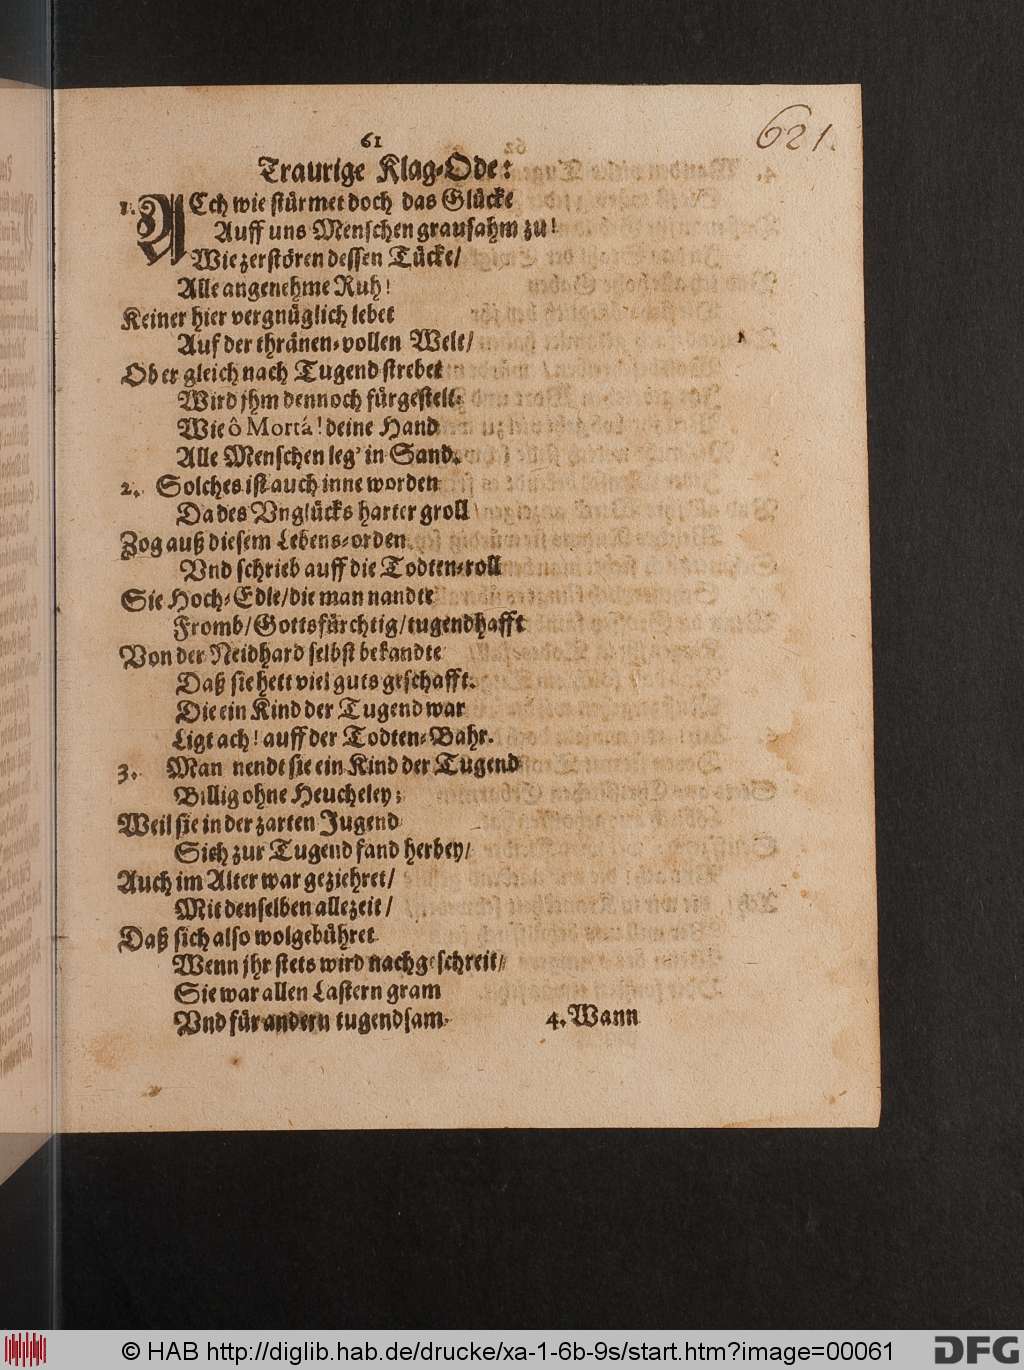 61
621.
Traurige Klag-Ode:
1. ACch wie stürmet doch das Glücke
Auff uns Menschen grausahm zu!
Wie zerstören dessen Tücke/
Alle angenehme Ruh!
Keiner hier vergnüglich lebet
Auf der thränen-vollen Welt/
Ob er gleich nach Tugend strebet
Wird jhm dennoch fürgestelt.
Wie ô Mortá! deine Hand
Alle Menschen leg' in Sand.
2. Solches ist auch inne worden
Da des Vnglücks harter groll
Zog auß diesem Lebens-orden
Vnd schrieb auff die Todten-roll
Sie Hoch-Edle/die man nandte
Fromb/Gottsfürchtig/tugendhafft
Von der Neidhard selbst bekandte
Daß sie hett viel guts geschafft.
Die ein Kind der Tugend war
Ligt ach! auff der Todten-Bahr.
3. Man nendt sie ein Kind der Tugend
Billig ohne Heucheley;
Weil sie in der zarten Jugend
Sich zur Tugend fand herbey/
Auch im Alter war geziehret/
Mit denselben allezeit/
Daß sich also wolgebühret
Wenn jhr stets wird nachgeschreit/
Sie war allen Lastern gram
Vnd für andern tugendsam.
4. Wann
© HAB http://diglib.hab.de/drucke/xa-1-6b-9s/start.htm?image=00061
DFG